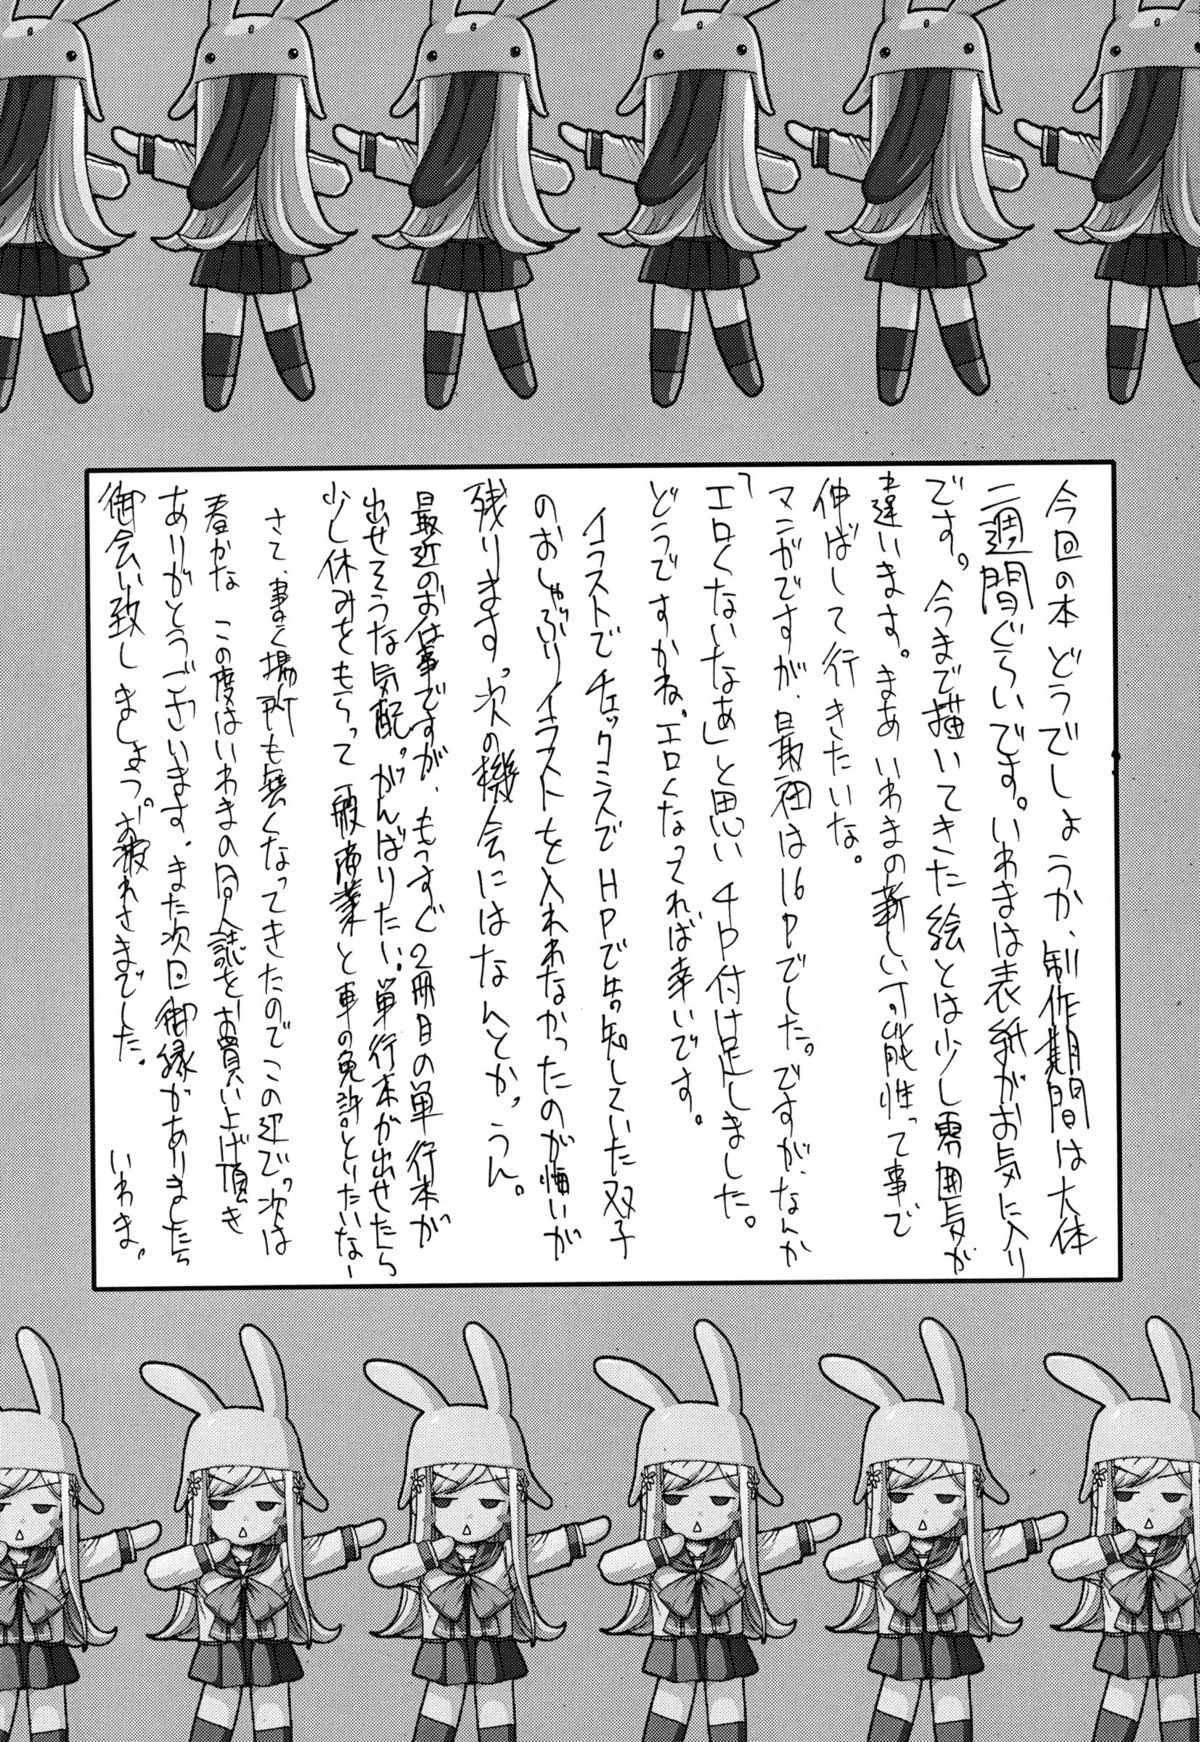 今回の本どうでしょうか、制作期間は大体
二週間ぐらいです。いわまは表紙がお気に入り
です。今まで描いてきた絵とは少し雰囲気が
違います。まあいわまの新しい可能性って事で
伸ばして行きたいな。
マンガですが、最初は16Pでした。ですが、なんか
「エロくないなあ」と思い4P付け足しました。
どうですかね。エロくなってれば幸いです。
イラストでチェックミスでHPで告知していた双子
のおしゃぶりイラストを入れれなかったのが悔いが
残ります。次の機会にはなんとか。うん。
最近のお仕事ですが、もうすぐ2冊目の単行本が
出せそうな気配。がんばりたい。単行本が出せたら
少し休みをもらって一般商業と車の免許とりたいなー
さて、書く場所も無くなってきたのでこの辺で。次は
春かな この度はいわまの同人誌をお買い上げ頂き
ありがとうございます。また次回御縁がありましたら
御会い致しましょう。お疲れさまでした。
いわま。